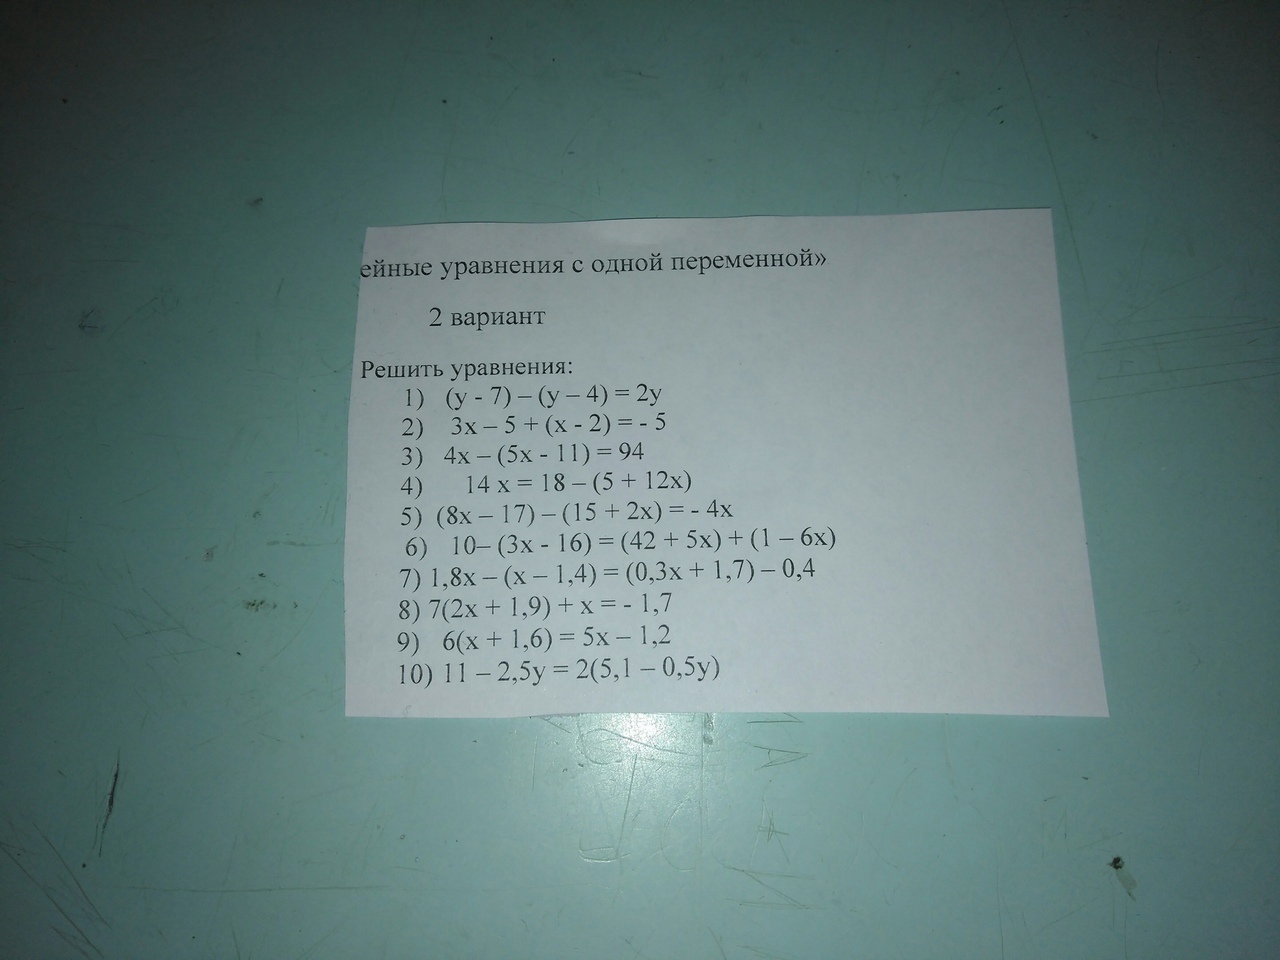 ейные уравнения с одной переменной»
2 вариант
Решить уравнения:
1) (у - 7) – (у – 4) = 2у
2) 3х – 5 + (х - 2) = - 5
3) 4х – (5х - 11) = 94
4) 14 х = 18 – (5 + 12х)
5) (8х – 17) – (15 + 2х) = - 4х
6) 10– (3х - 16) = (42 + 5х) + (1 – 6х)
7) 1,8х – (х – 1,4) = (0,3х + 1,7) – 0,4
8) 7(2х + 1,9) + х = - 1,7
9) 6(х + 1,6) = 5х – 1,2
10) 11 – 2,5у = 2(5,1 – 0,5у)